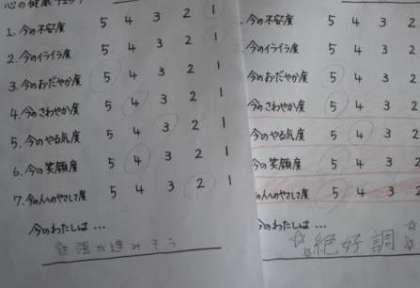 心の健康チェック
1. 今の不安度 5 4 3 2 1
2. 今のイライラ度 5 4 3 2 1
3. 今のおだやか度 5 4 3 2 1
4. 今のさわやか度 5 4 3 2 1
5. 今のやる気度 5 4 3 2 1
6. 今の笑顔度 5 4 3 2 1
7. 今の人へのやさしさ度 5 4 3 2 1
今のわたしは…
勉強が進みそう
今の不安度 5 4 3 2
今のイライラ度 5 4 3 2
今のおだやか度 5 4 3 2
今のさわやか度 5 4 3 2
今のやる気度 5 4 3 2
今の笑顔度 5 4 3 2
今の人へのやさしさ度 5 4 3 2
今のわたしは…
☆絶好調☆